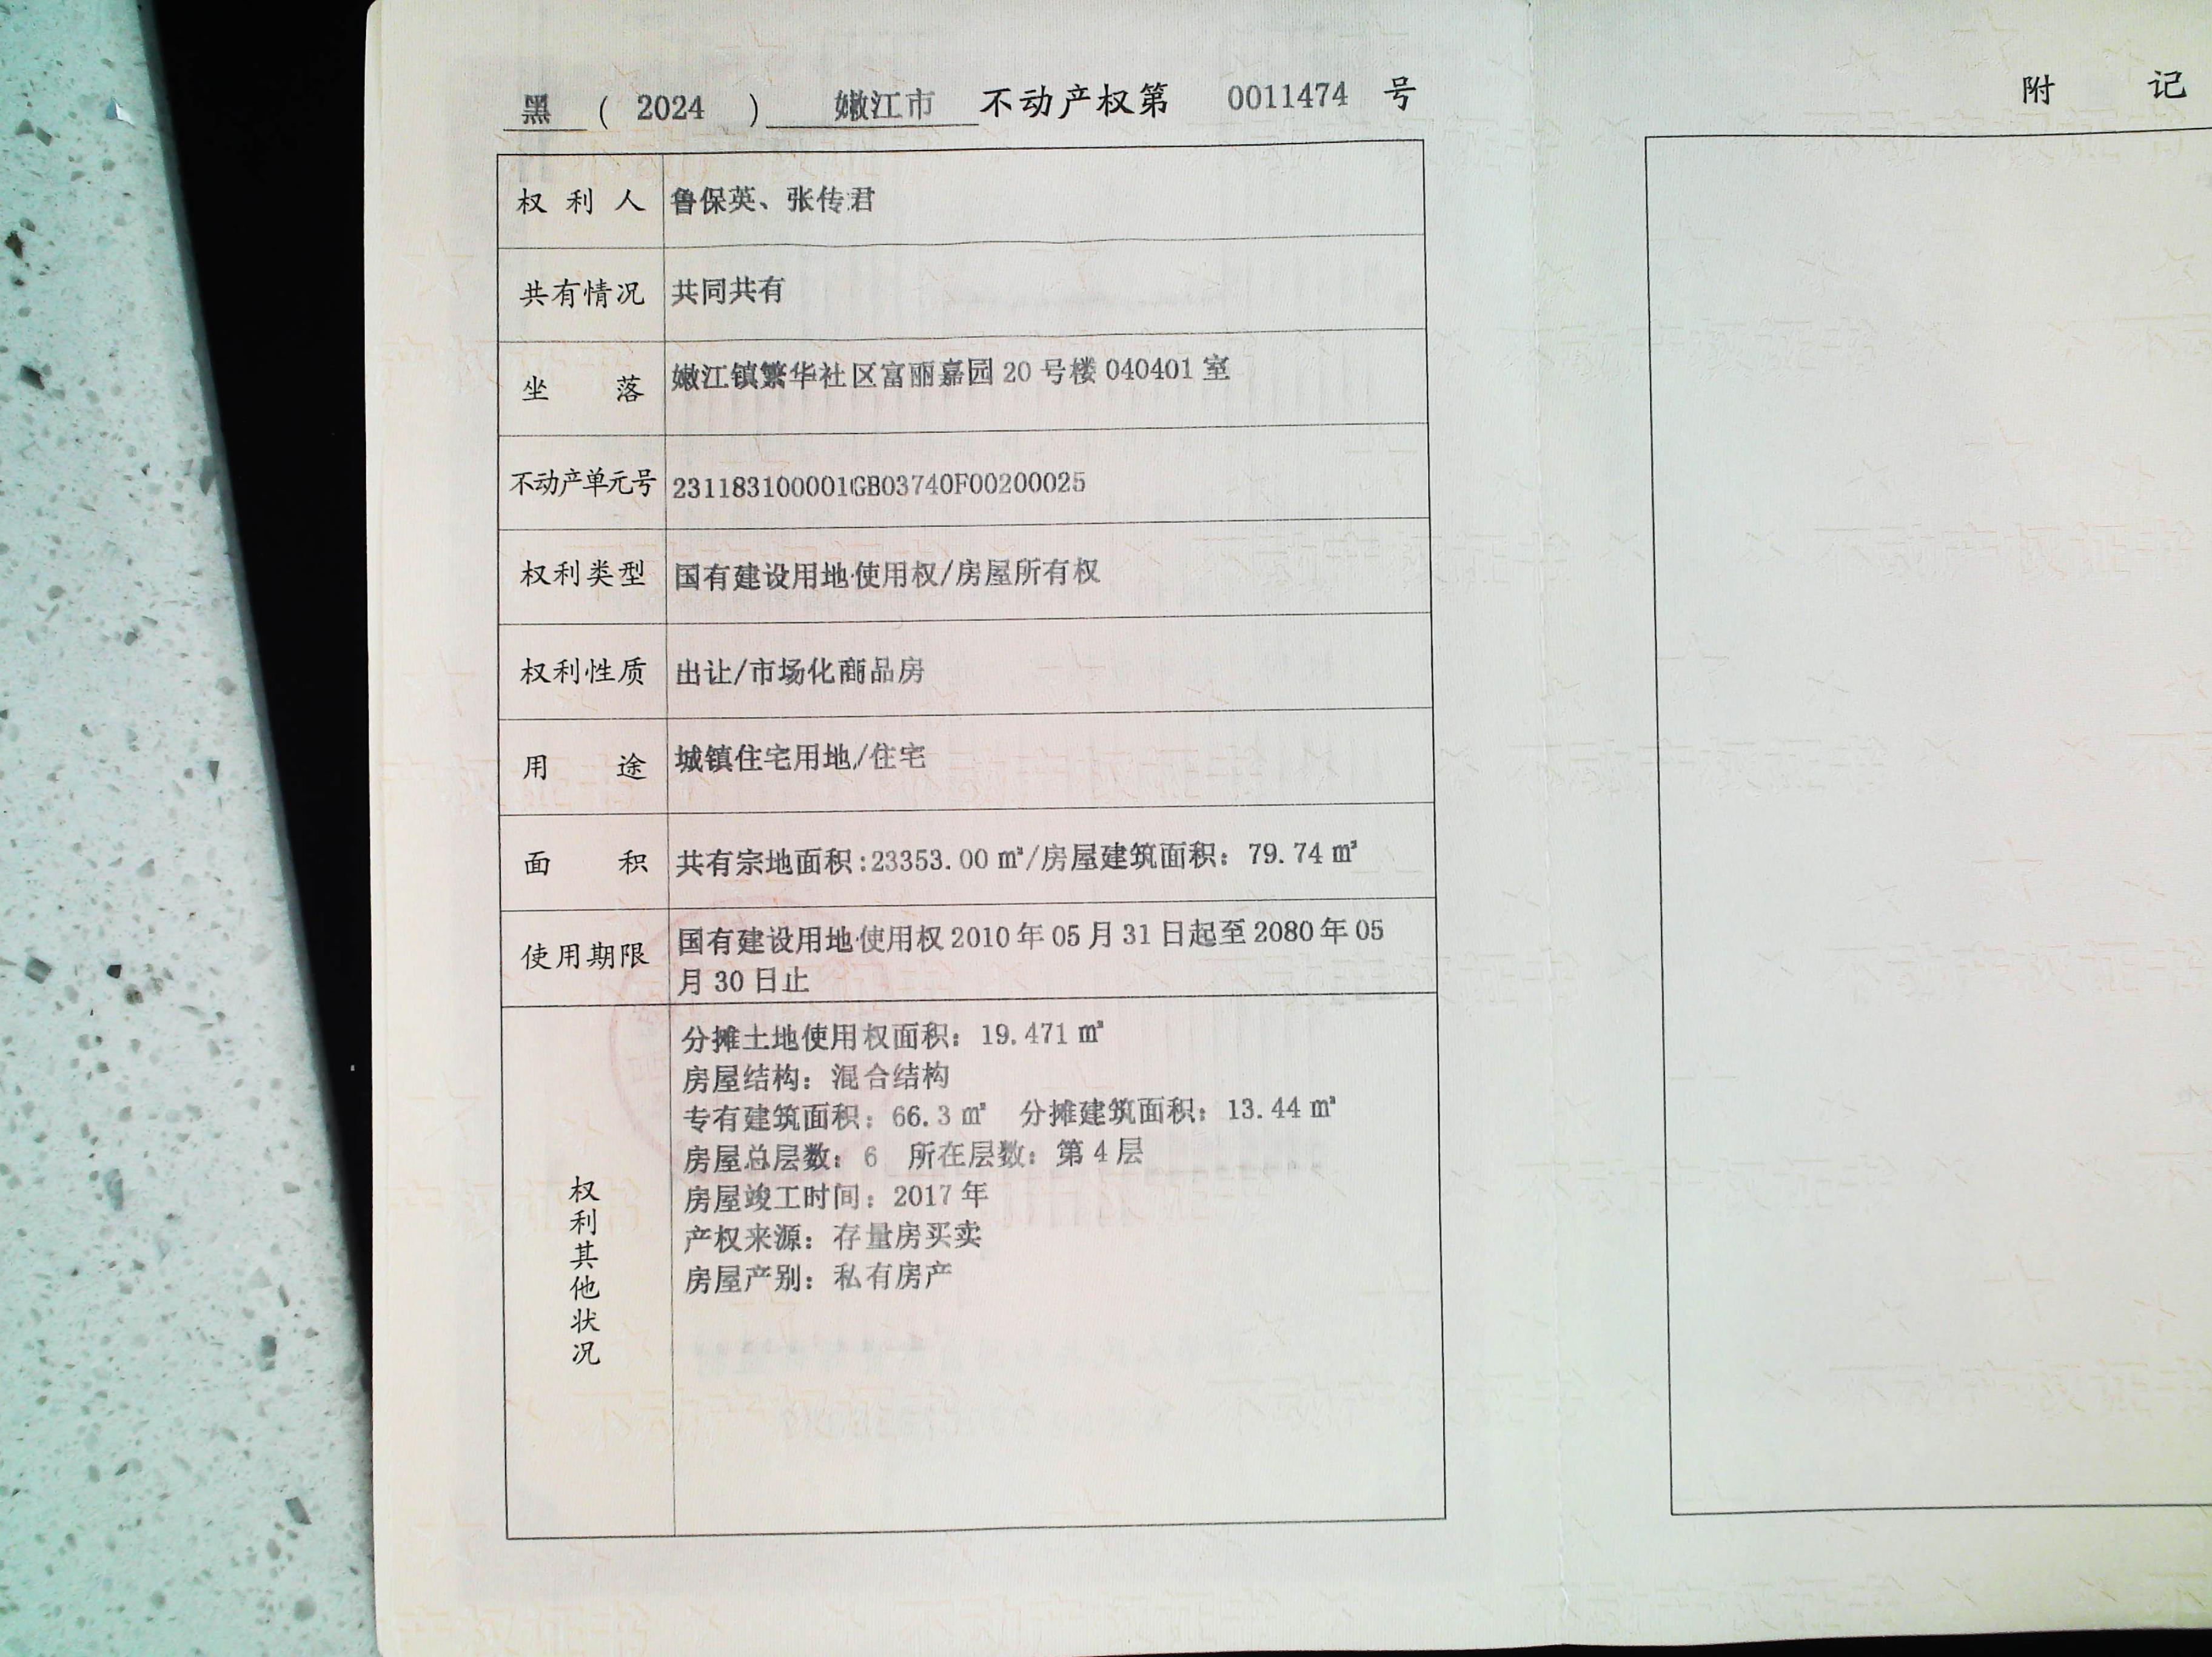 黑 ( 2024 ) 嫩江市 不动产权第 0011474 号
权利人 鲁保英、张传君
共有情况 共同共有
坐落 嫩江镇繁华社区富丽嘉园 20 号楼 040401 室
不动产单元号 231183100001GB03740F00200025
权利类型 国有建设用地使用权/房屋所有权
权利性质 出让/市场化商品房
用途 城镇住宅用地/住宅
面积 共有宗地面积:23353.00 ㎡/房屋建筑面积: 79.74 ㎡
使用期限 国有建设用地使用权 2010 年 05 月 31 日起至 2080 年 05
月 30 日止
权利其他状况
分摊土地使用权面积: 19.471 ㎡
房屋结构: 混合结构
专有建筑面积: 66.3 ㎡ 分摊建筑面积: 13.44 ㎡
房屋总层数: 6 所在层数: 第 4 层
房屋竣工时间: 2017 年
产权来源: 存量房买卖
房屋产别: 私有房产
附记